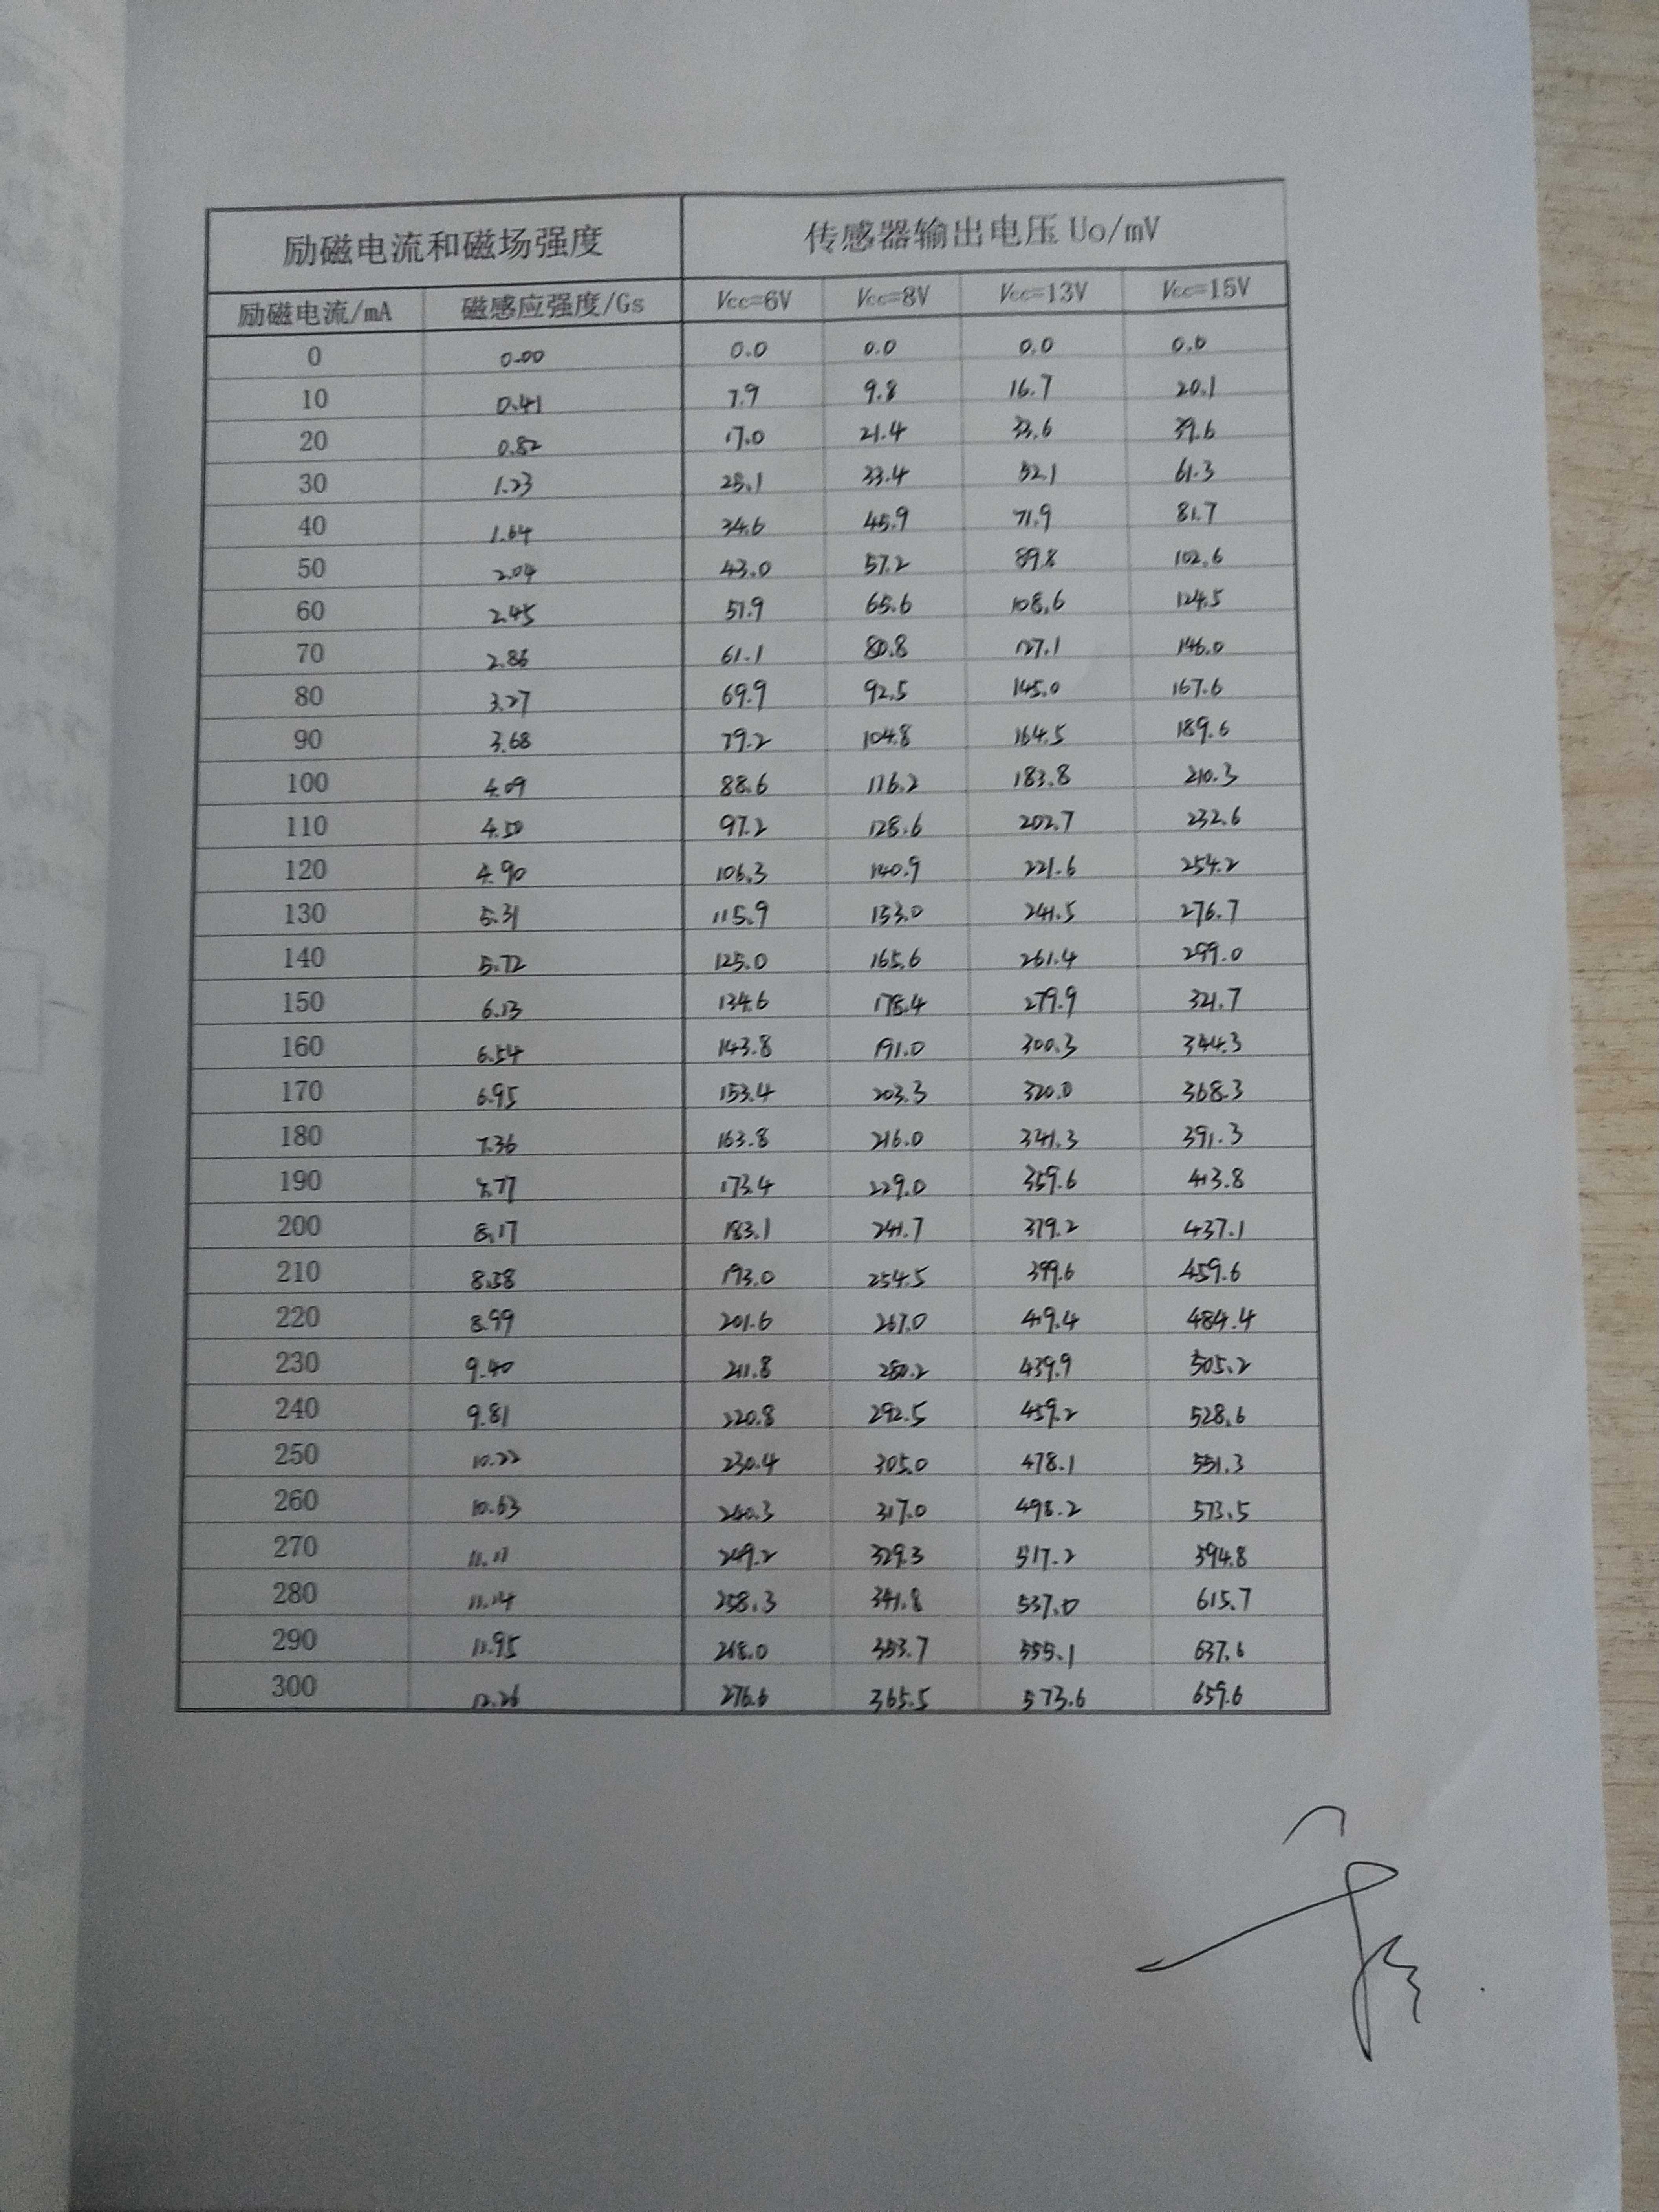 励磁电流和磁场强度 传感器输出电压 Uo/mV
励磁电流/mA 磁感应强度/Gs Vcc=6V Vcc=8V Vcc=13V Vcc=15V
0 0.00 0.0 0.0 0.0 0.0
10 0.41 7.9 9.8 16.7 20.1
20 0.82 17.0 21.4 33.6 39.6
30 1.23 25.1 33.4 52.1 61.3
40 1.64 34.6 45.9 71.9 81.7
50 2.04 43.0 57.2 89.8 102.6
60 2.45 51.9 65.6 108.6 124.5
70 2.86 61.1 80.8 127.1 146.0
80 3.27 69.9 92.5 145.0 167.6
90 3.68 79.2 104.8 164.5 189.6
100 4.09 88.6 116.2 183.8 210.3
110 4.50 97.2 128.6 202.7 232.6
120 4.90 106.3 140.9 221.6 254.2
130 5.31 115.9 153.0 241.5 276.7
140 5.72 125.0 165.6 261.4 299.0
150 6.13 134.6 178.4 279.9 321.7
160 6.54 143.8 191.0 300.3 344.3
170 6.95 153.4 203.3 320.0 368.3
180 7.36 163.8 216.0 341.3 391.3
190 7.77 173.4 229.0 359.6 413.8
200 8.17 183.1 241.7 379.2 437.1
210 8.58 193.0 254.5 399.6 459.6
220 8.99 201.6 267.0 419.4 484.4
230 9.40 211.8 280.2 439.9 505.2
240 9.81 220.8 292.5 459.2 528.6
250 10.22 230.4 305.0 478.1 551.3
260 10.63 240.3 317.0 498.2 573.5
270 249.2 329.3 517.2 594.8
280 258.3 341.8 537.0 615.7
290 11.95 268.0 353.7 555.1 637.6
300 12.26 276.6 365.5 573.6 659.6